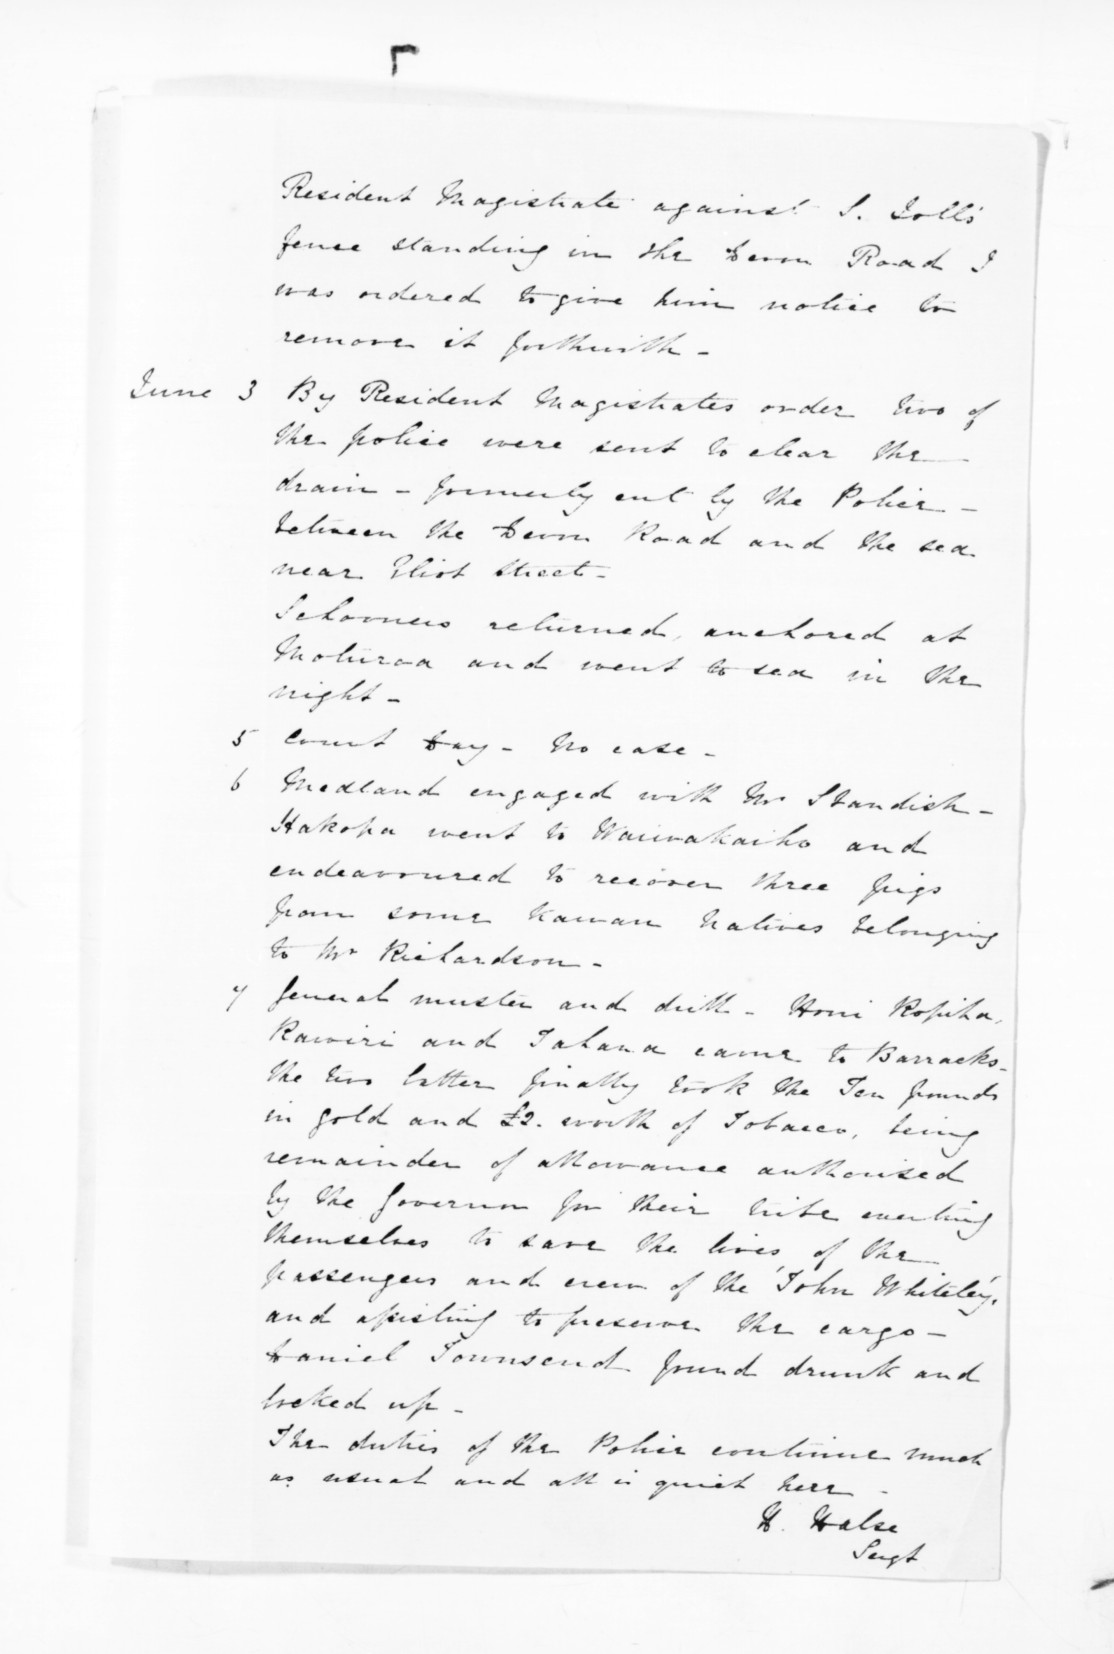 Resident Magistrate against S. Joll's
fence standing in the Devon Road I
was ordered to give him notice to
remove it forthwith -
June 3 By Resident Magistrates order two of
the police were sent to clear the
drain - formerly cut by the Police -
between the Devon Road and the sea
near Eliot Street -
Schooners returned, anchored at
Moturoa and went to sea in the
night -
5 Court Day - No case -
6 Medland engaged with Mr Standish -
Hakopa went to Waiwakaiho and
endeavoured to recover three pigs
from some Kawau Natives belonging
to Mr Richardson -
7 General muster and drill - Honi Ropiha,
Rawiri and Tahana came to Barracks -
the two latter finally took the Ten pounds
in gold and £2. worth of Tobacco, being
remainder of allowance authorised
by the Governor for their tribe exerting
themselves to save the lives of the
passengers and crew of the 'John Whiteley',
and assisting to preserve the cargo -
Daniel Townsend found drunk and
locked up -
The duties of the Police continue much
as usual and all is quiet here -
H. Halse
Sergt